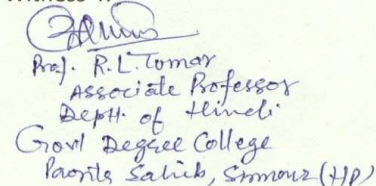 Witness
Prof. R.L. Tomar
Associate Professor
Deptt. of Hindi
Govt Degree College
Paonta Sahib, Sirmour (HP)